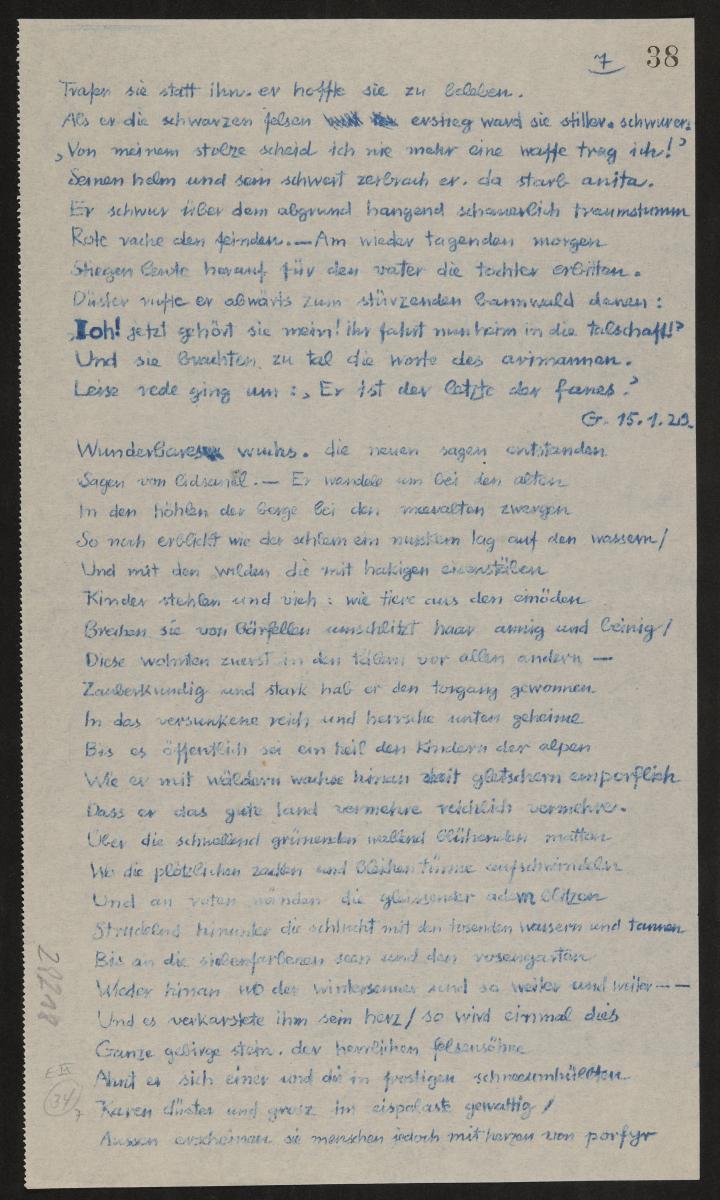 7 38
Trafen sie statt ihn. er hoffte sie zu beleben.
Als er die schwarzen felsen erstieg ward sie stiller. schwur er:
„Von meinem stolze scheid ich nie mehr eine waffe trag ich!"
Seinen helm und sein schwert zerbrach er. da starb anita.
Er schwur über dem abgrund hangend schauerlich traumstumm
Rote rache den feinden. — Am wieder tagenden morgen
Stiegen leute herauf für den vater die tochter erbitten.
Düster rufte er abwärts zum stürzenden bannwald denen:
„Ioh! jetzt gehört sie mein! ihr fahrt nun heim in die talschaft!"
Und sie brachten zu tal die worte des arimannen.
Leise rede ging um: „Er ist der letzte der fanes."
G. 15.1.29.
Wunderbares wuchs. die neuen sagen entstanden
Sagen vom lidsanel. — Er wandele um bei den alten
In den höhlen der berge bei den zwergen
So noch erblickt wie der schlern ein lag auf den wassern/
Und mit den wilden die mit hakigen eisenstäben
Kinder stehlen und vieh: wie tiere aus den einöden
Brechen sie von bärfellen umschlitzt haar armig und beinig/
Diese wohnten zuerst in den tälern vor allen andern —
Zauberkundig und stark hab er den torgang gewonnen
In das versunkene reich und herrsche unten geheime
Bis es öffentlich sei ein heil den kindern der alpen
Wie er mit wäldern wachse hinan mit gletschern emporflieh
Dass er das gute land vermehre reichlich vermehre.
Über die schwellend grünenden wallend blühenden matten
Wo die plötzlichen zacken und bleichen türme aufschwindeln
Und an roten wänden die gleissender adern blitzen
Strudelnd hinunter die schlucht mit den tosenden wassern und tannen
Bis an die siebenfarbenen seen und den rosengarten
Wieder hinan wo der wintersenner und so weiter und weiter — —
Und es verkarstete ihm sein herz/ so wird einmal dies
Ganze gebirge stein. der herrlichen felsensöhne
Ahnt er sich einer und die in frostigen schneeumhüllten
Karen düster und gross im eispalaste gewaltig/
Aussen erscheinen sie menschen jedoch mit herzen von porfyr
34
7